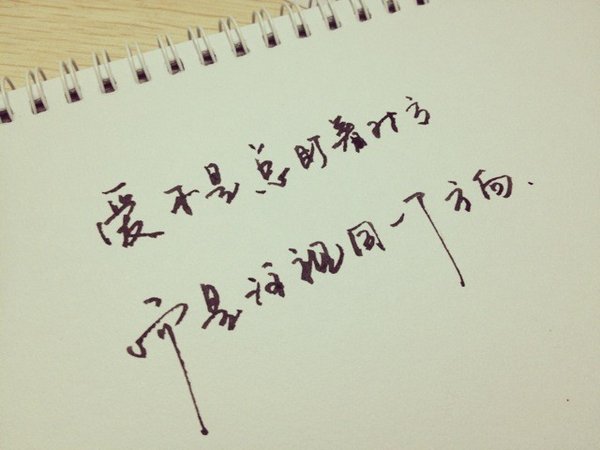 爱不是总盯着对方
而是注视同一个方向.